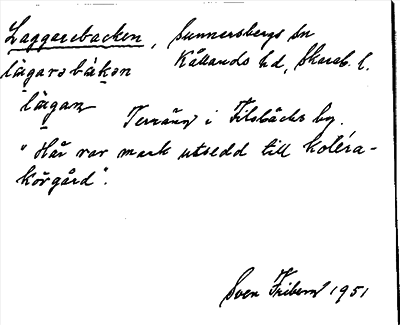 Laggarebacken, Sunnersbergs sn
lagarəbakən Kållands hd, Skarab. l.
lagan
Terräng i Filsbäcks by.
"Här var mark utsedd till kolera-
körgård".
Sven Friberg 1951